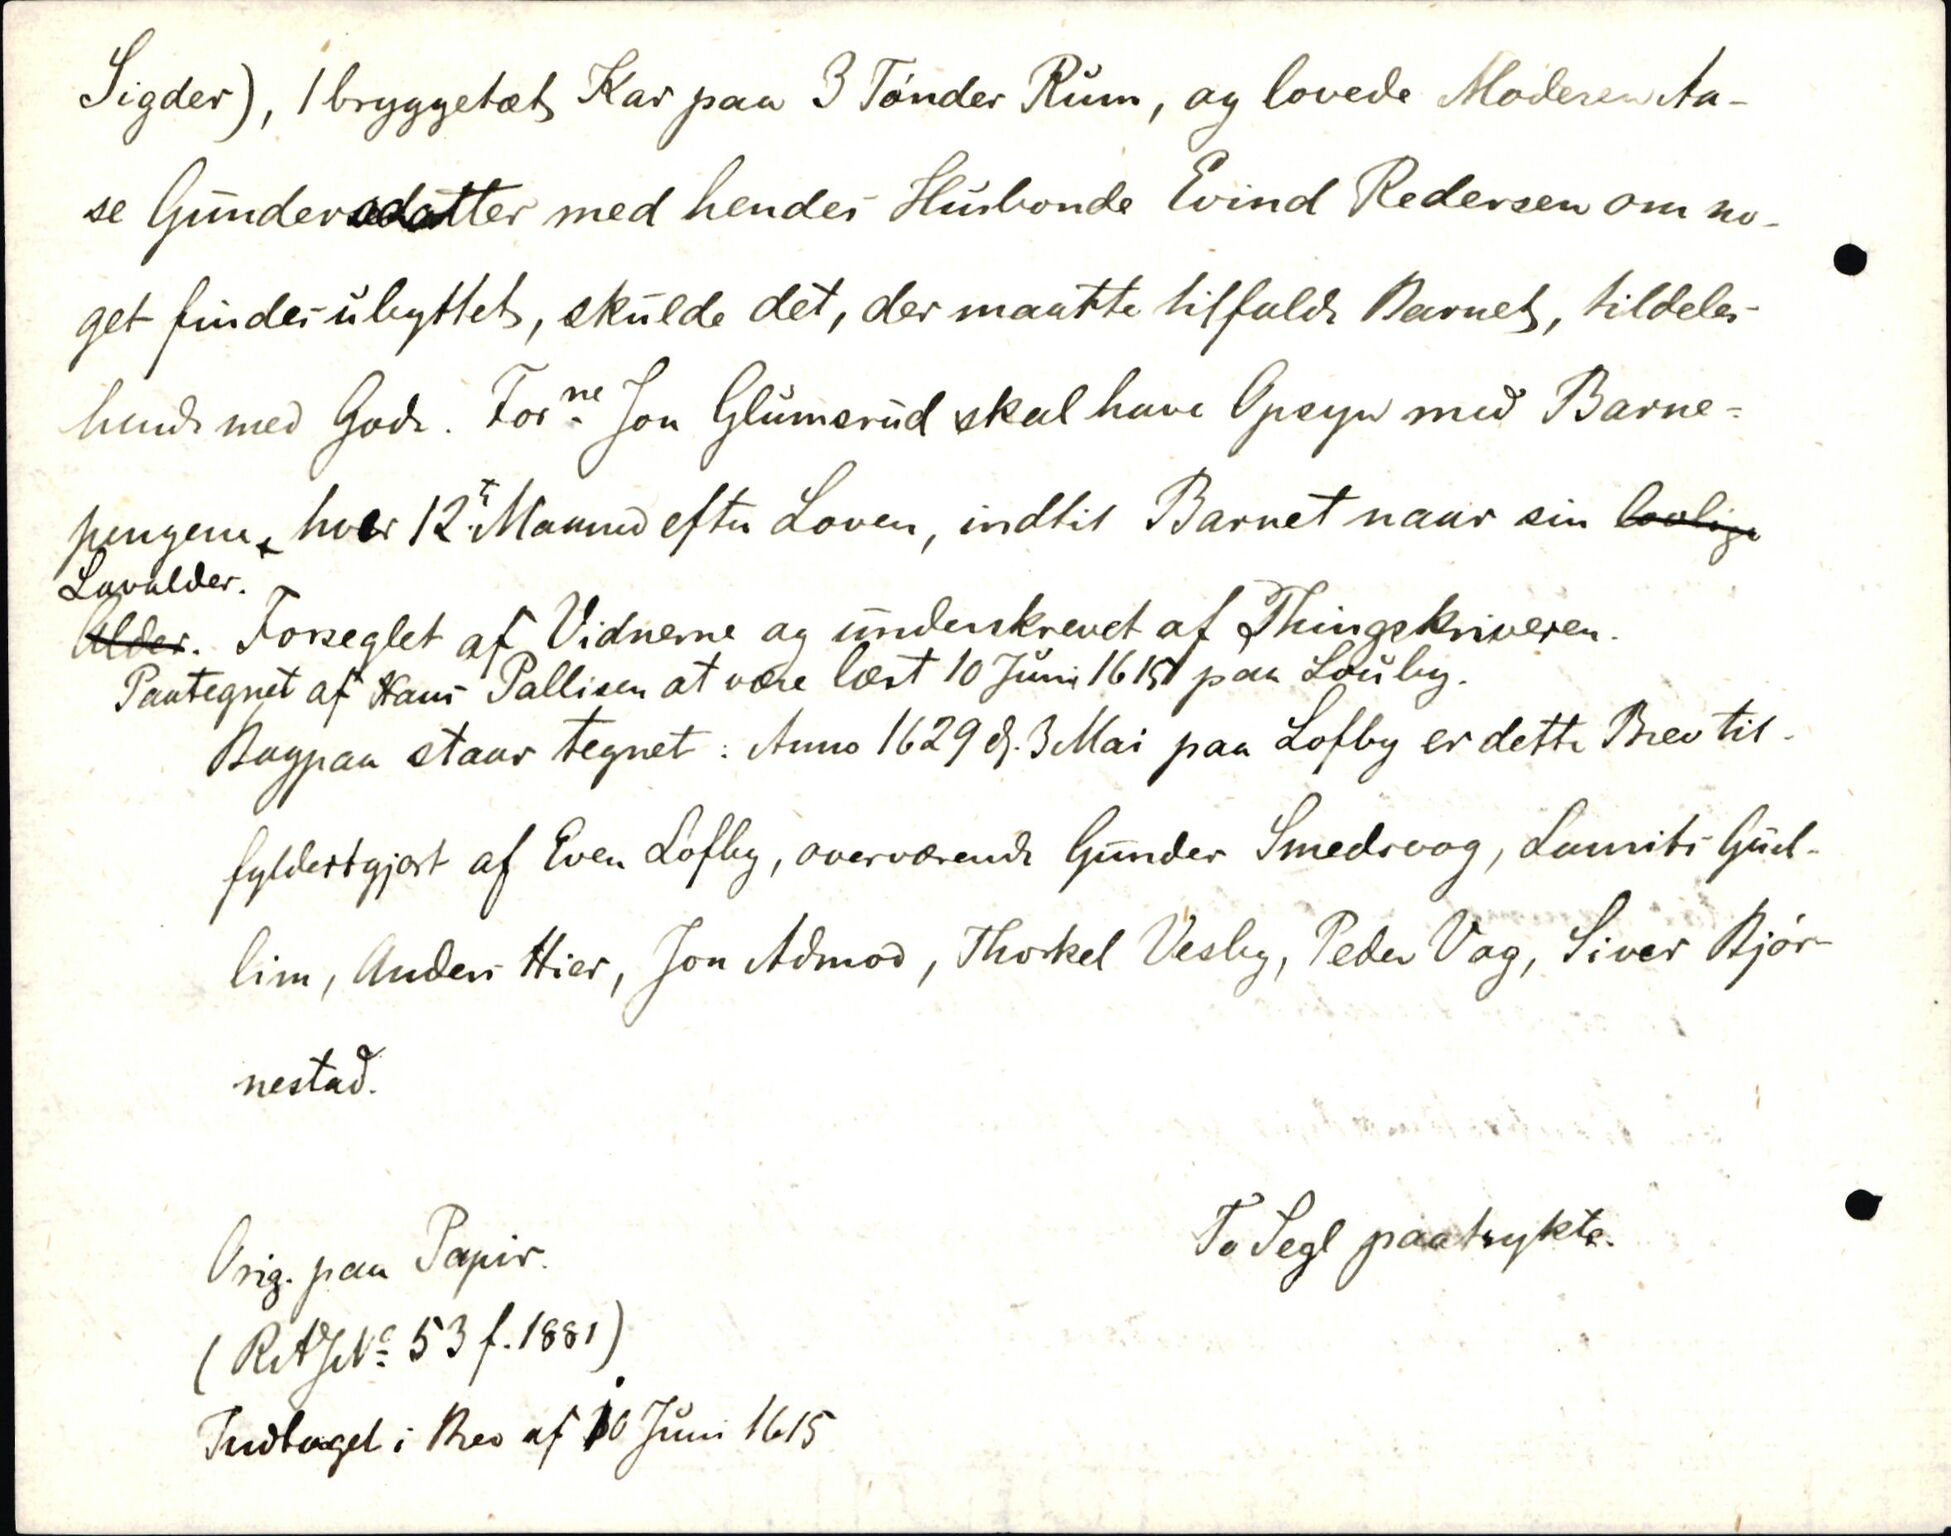 Sigder), 1 bryggetæt Kar paa 3 Tønder Rum, og lovede Moderen Aa-
se Gundersdatter med hendes Husbonde Evind Redersen om no-
get findes ubyttet, skulde det, der maatte tilfalde Barnet, tildeles
hende med Gode. Forne Jon Glumsrud skal have Opsyn med Barne-
pengene hver 12te Maaned efter Loven, indtil Barnet naar sin lovlige
Lavalder.
Alder. Forseglet af Vidnerne og underskrevet af Thingskriveren.
Paategnet af Hans Pallisen at være læst 10 Juni 1615 paa Louby.
Bagpaa staar tegnet: Anno 1629 d. 3 Mai paa Lofby er dette Brev til-
fyldestgjort af Even Lofby, overværende Gunder Smedsvog, Laurits Gul-
lim, Anders Hier, Jon Admod, Thorkel Vesby, Peder Vag, Siver Bjør-
nestad.
To Segl paatrykte.
Orig. paa Papir.
(RA JNo 53 f. 1881)
Indtaget i Brev af 10 Juni 1615